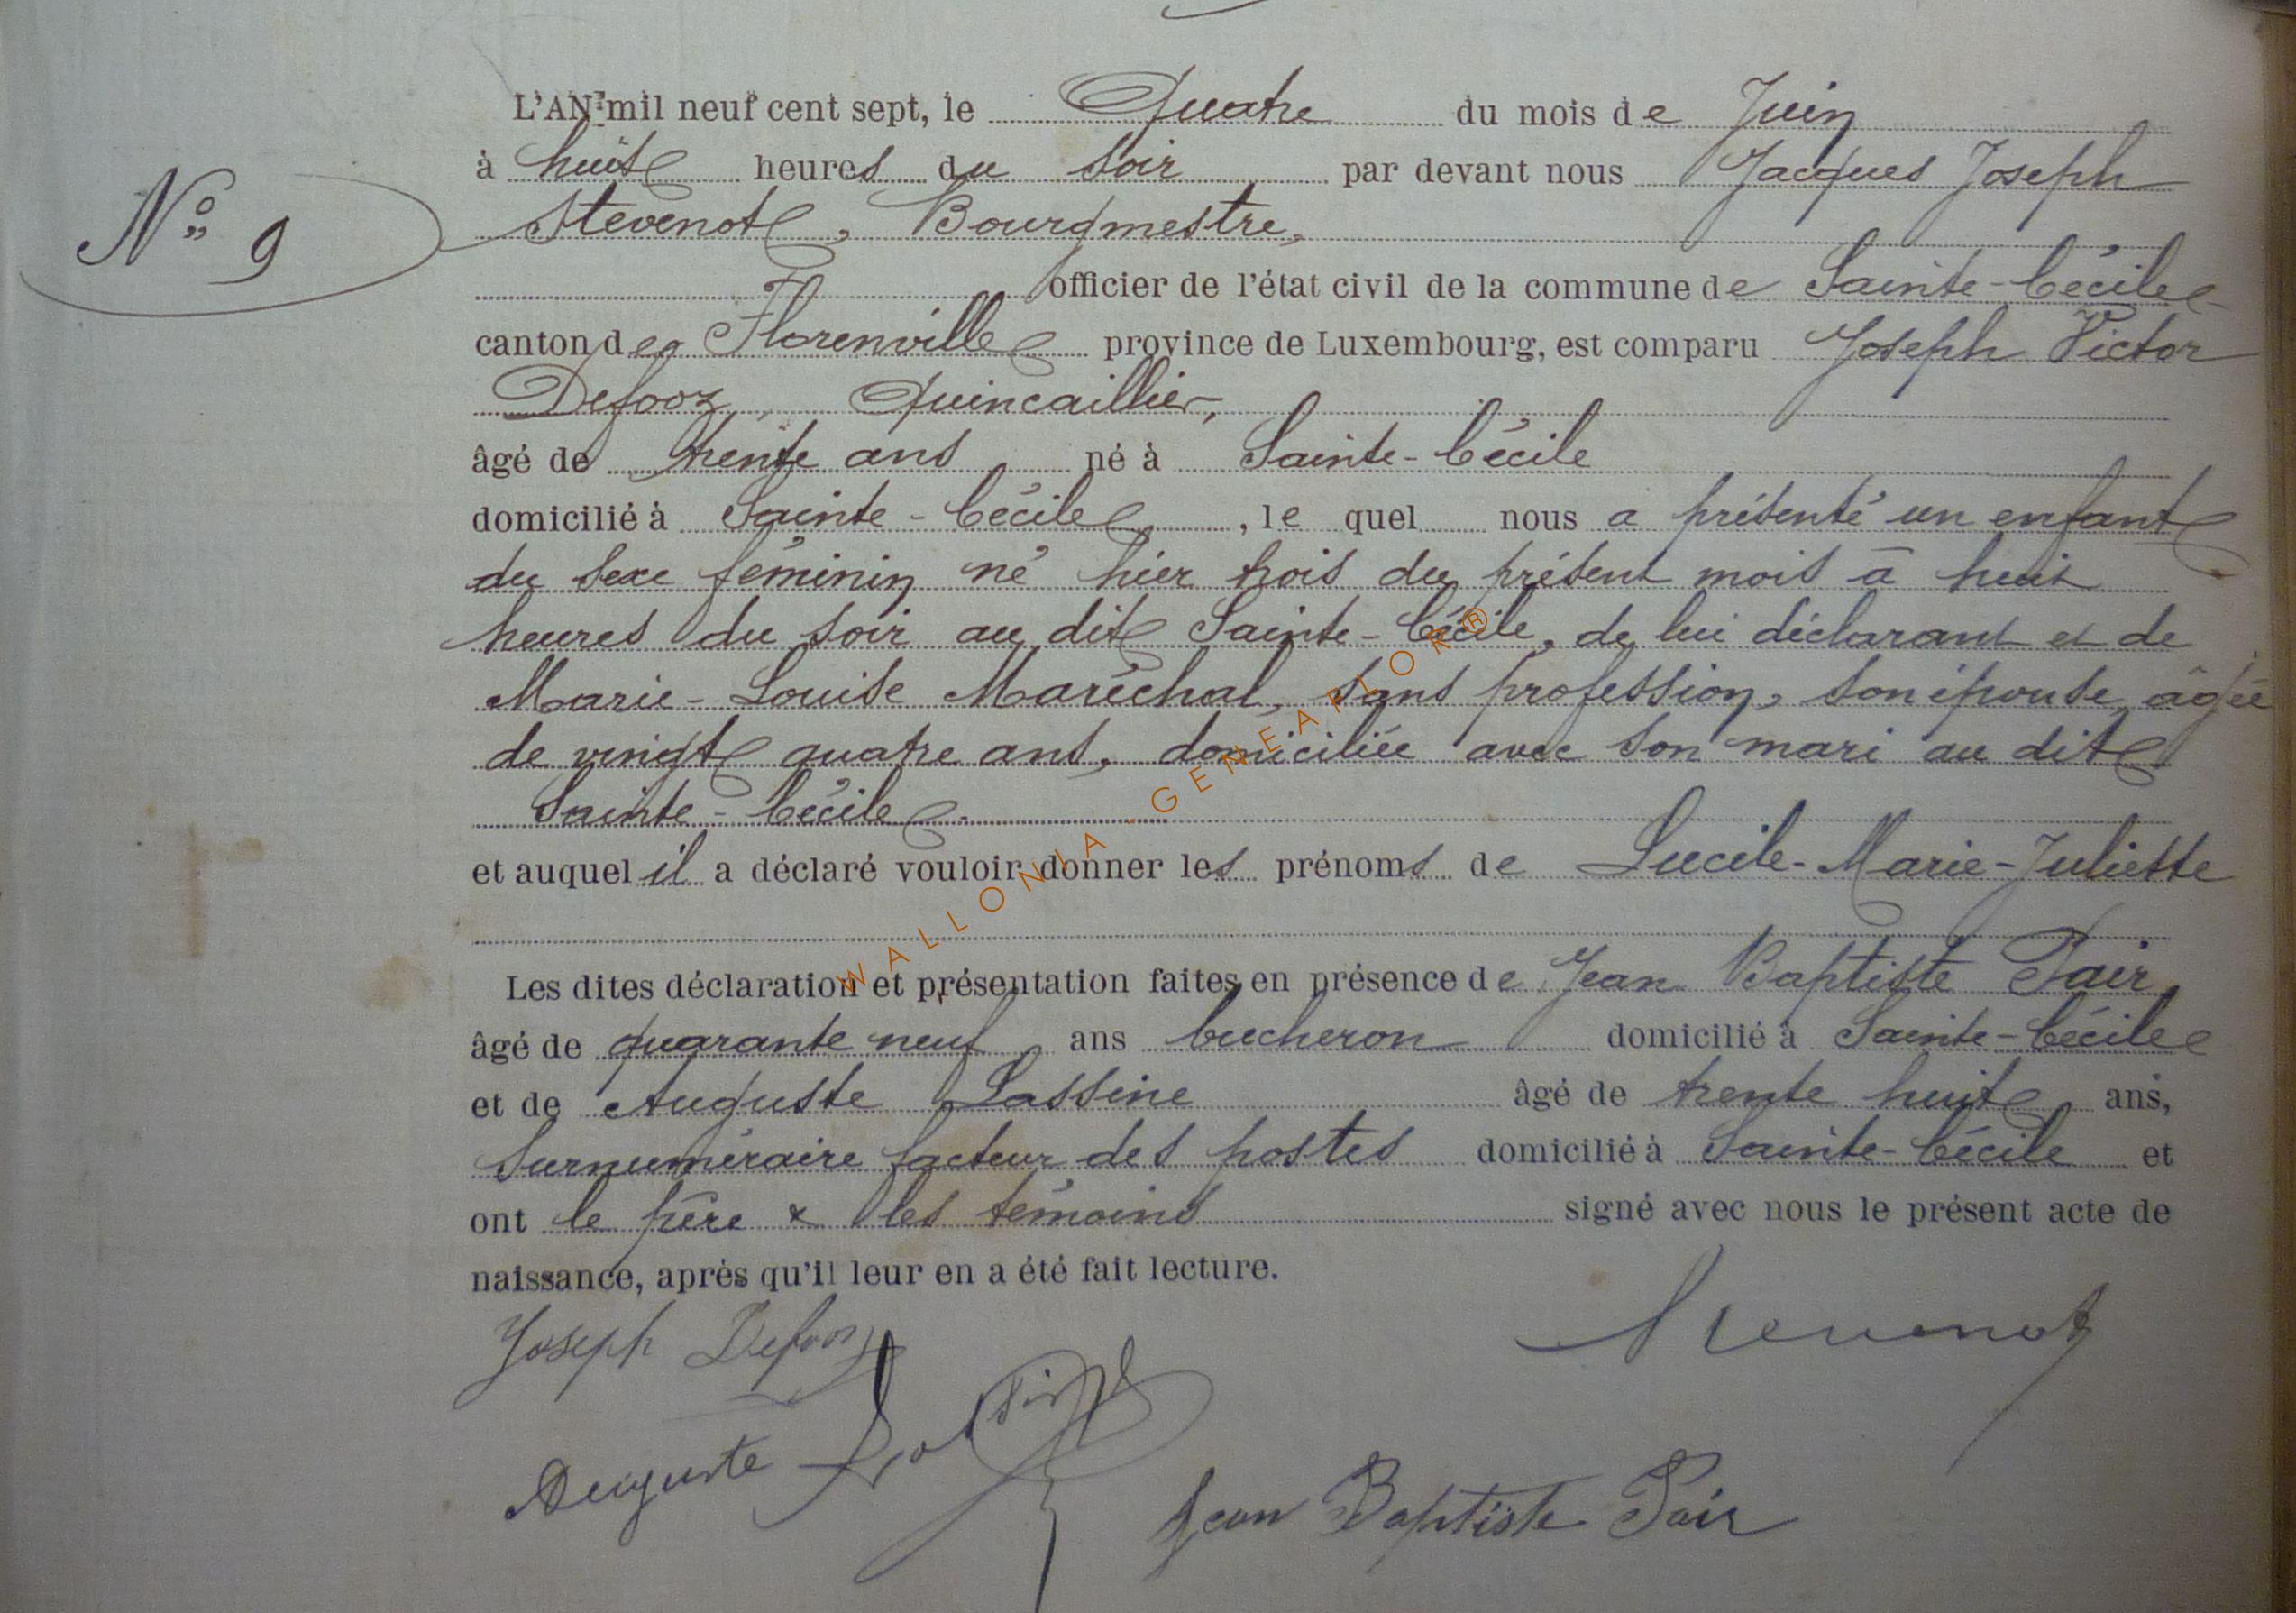 L'AN mil neuf cent sept, le Quatre du mois de Juin
à huit heures du soir par devant nous Jacques Joseph
N° 9
Stevenot, Bourgmestre,
officier de l'état civil de la commune de Sainte-Cécile
canton de Florenville province de Luxembourg, est comparu Joseph Victor
Defooz, Quincaillier,
âgé de trente ans né à Sainte-Cécile
domicilié à Sainte-Cécile, le quel nous a présenté un enfant
du sexe féminin né hier trois du présent mois à huit
heures du soir au dit Sainte-Cécile, de lui déclarant et de
Marie-Louise Maréchal, sans profession, son épouse, âgée
de vingt quatre ans, domiciliée avec son mari au dit
Sainte-Cécile.
et auquel il a déclaré vouloir donner les prénoms de Lucile-Marie-Juliette
Les dites déclaration et présentation faites en présence de Jean Baptiste Pair
âgé de quarante neuf ans bucheron domicilié à Sainte-Cécile
et de Auguste Lassine âgé de trente huit ans,
surnuméraire facteur des postes domicilié à Sainte-Cécile et
ont le père & les témoins signé avec nous le présent acte de
naissance, après qu'il leur en a été fait lecture.
Joseph Defooz
Stevenot
Auguste Lassine
Jean Baptiste Pair
WALLONIA-GENEAFLOR®